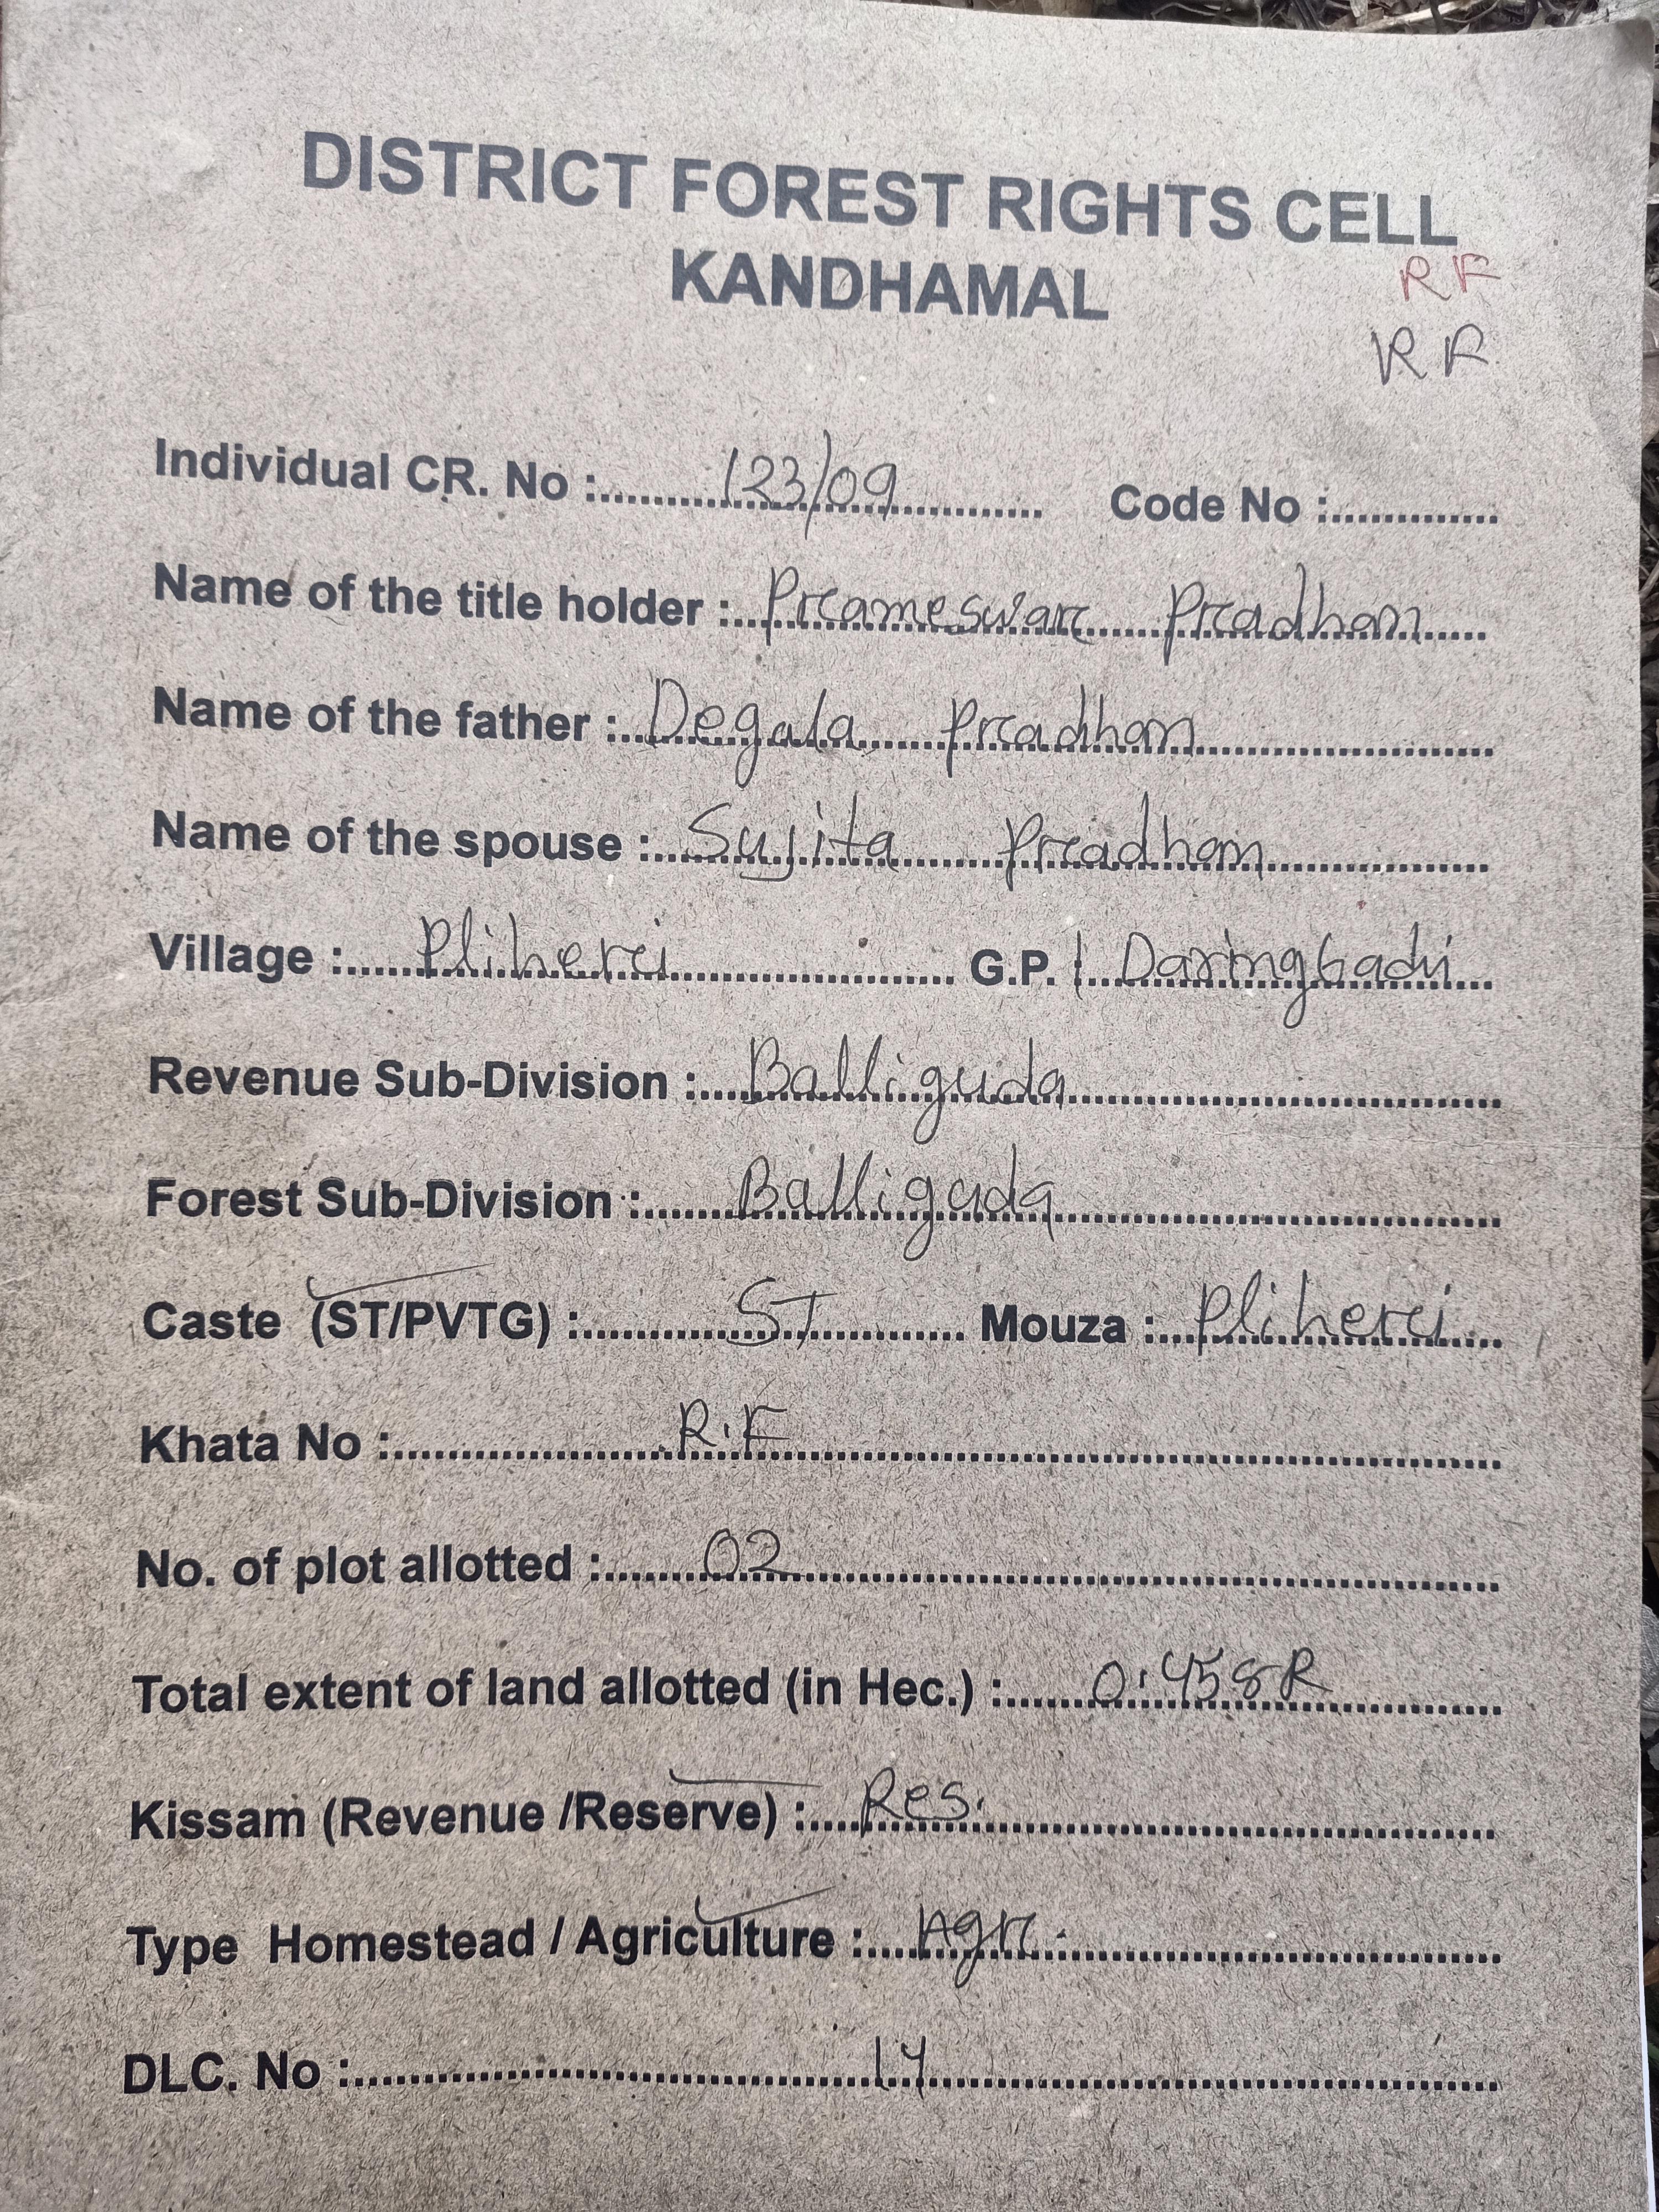 DISTRICT FOREST RIGHTS CELL
KANDHAMAL
RF
RF
Individual CR. No : 123/09 Code No :
Name of the title holder : Prameswar Pradhan
Name of the father : Degala Pradhan
Name of the spouse : Sujita Pradhan
Village : Pliheri G.P. : Daringbadi
Revenue Sub-Division : Balliguda
Forest Sub-Division : Balliguda
Caste (ST/PVTG) : ST Mouza : Pliheri
Khata No : R.F
No. of plot allotted : 02
Total extent of land allotted (in Hec.) : 0.458R
Kissam (Revenue /Reserve) : Res.
Type Homestead / Agriculture : Agr.
DLC. No : 14